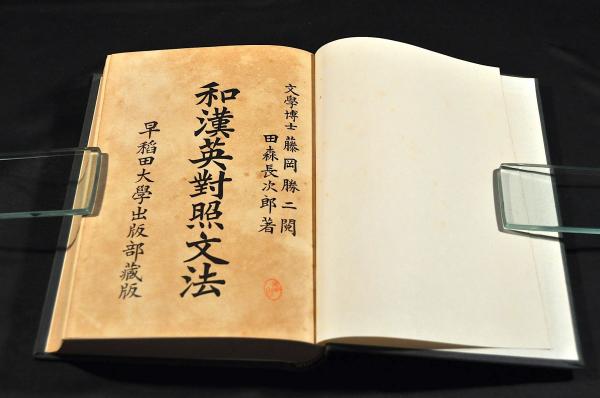 文學博士 藤岡勝二閱
田森長次郎著
和漢英對照文法
早稻田大學出版部藏版